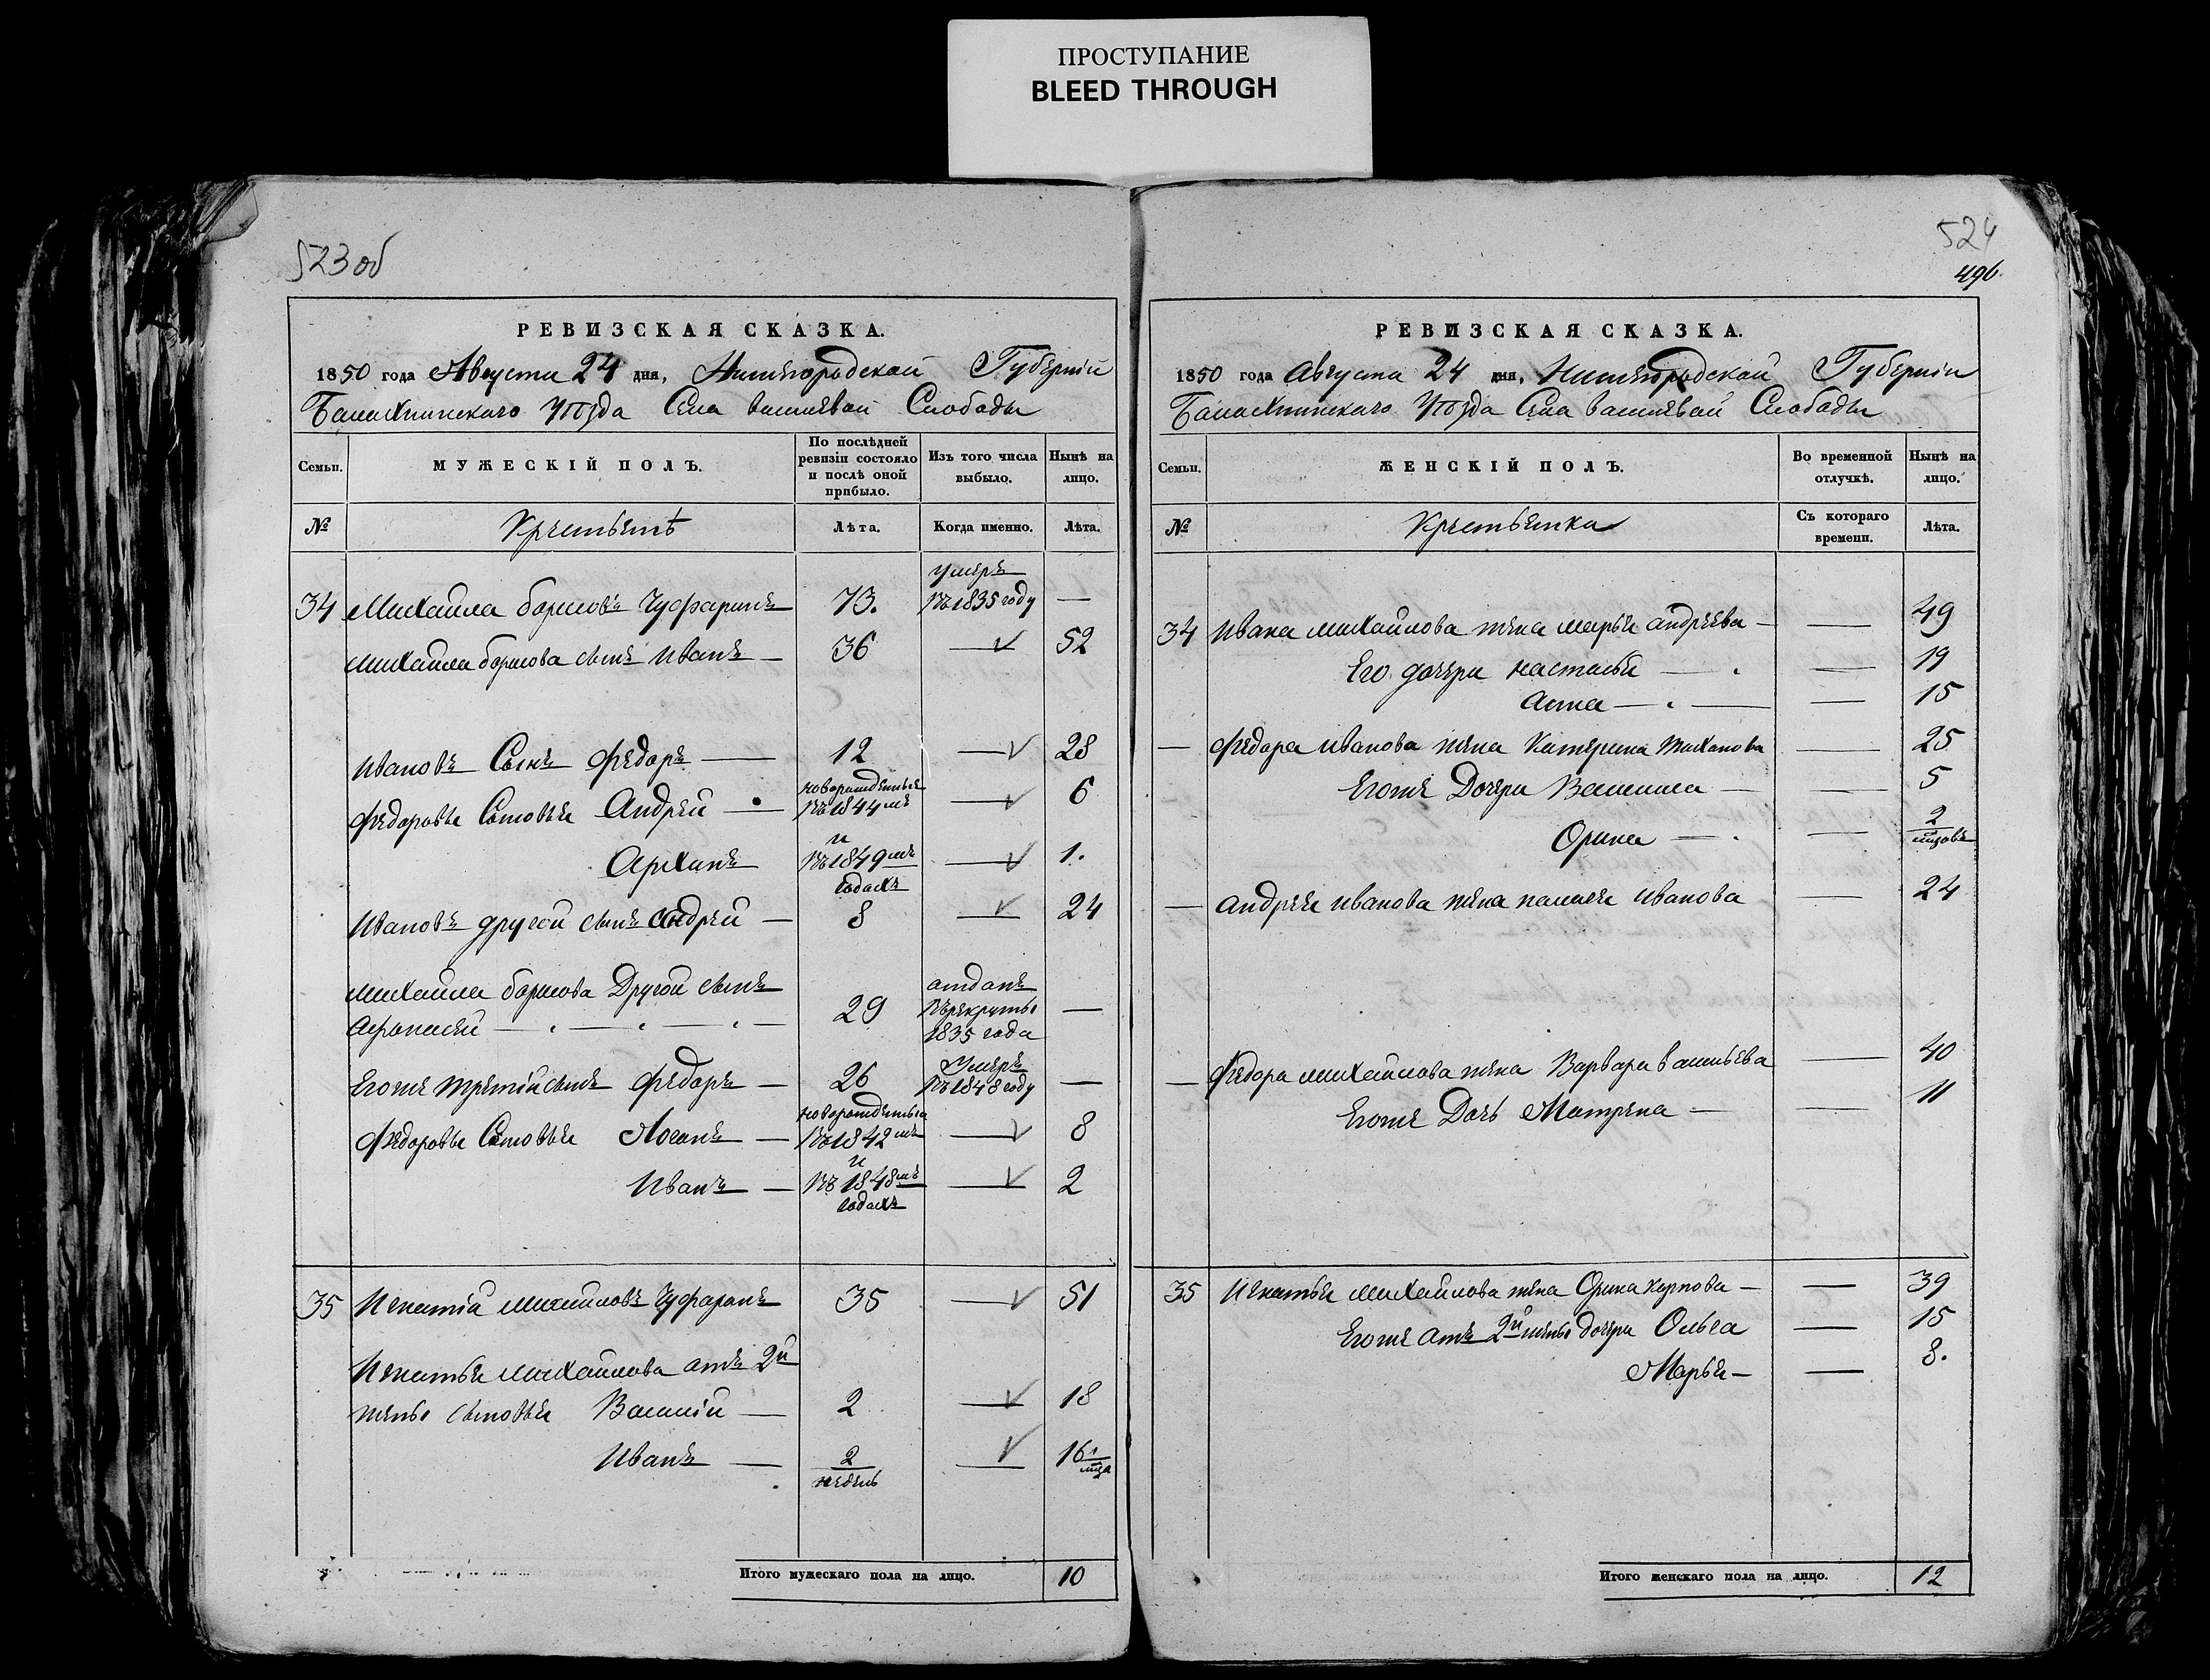 ПРОСТУПАНИЕ
BLEED THROUGH
523 об
РЕВИЗСКАЯ СКАЗКА.
1850 года Августа 24 дня, Нижегородской Губернии
Балахнинскаго Уѣзда Села Василевай Слободы
Семьи.
МУЖЕСКІЙ ПОЛЪ.
По послѣдней ревизіи состояло и послѣ оной прибыло.
Изъ того числа выбыло.
Нынѣ на лицо.
№
Крестьянѣ
Лѣта.
Когда именно.
Лѣта.
34 Михайла борисовъ Чуфаринъ 73. умеръ въ 1835 году —
Михайла борисова сынъ Иванъ — 36 — 52
Ивановъ Сынъ Федоръ — 12 — 28
Федоровы Сыновья Андрей — новорожденные въ 1844мъ — 6
Архипъ и въ 1849мъ годахъ — 1.
Ивановъ другой сынъ Андрей — 8 — 24
Михайла борисова Другой сынъ
Афонасей — 29 отданъ въ рекруты 1835 года —
Егоже третий сынъ Федоръ — 26 Умеръ въ 1848 году —
Федоровы Сыновья Логинъ — новорожденныя въ 1842мъ — 8
Иванъ — и въ 1848мъ годахъ — 2
35 Игнатій михаиловъ Чуфаринъ 35 — 51
Игнатья михайлова отъ 2й
жены сыновья Василий — 2 — 18
Иванъ — 2 недель — 16 1 мца
Итого мужескаго пола на лицо. 10
524
496.
РЕВИЗСКАЯ СКАЗКА.
1850 года Августа 24 дня, Нижегородской Губернии
Балахнинскаго Уѣзда Села Василевай Слободы
Семьи.
ЖЕНСКІЙ ПОЛЪ.
Во временной отлучкѣ.
Нынѣ на лицо.
№
Крестьянка
Съ котораго времени.
Лѣта.
34 Ивана михайлова жена марья андреева — — 49
Его дочери настасья — — 19
Анна — — 15
— Федора иванова жена Катерина — 25
Егоже Дочери Василиса — — 5
Орина — — 2 мцовъ
— Андрея иванова жена иванова — 24
— Федора михайлова жена Варвара васильева — 40
Егоже Дочь Матрена — — 11
35 Игнатья михайлова жена Орина карпова — — 39
Егоже отъ 2й жены дочери Ольга — 15
Марья — — 8.
Итого женскаго пола на лицо. 12